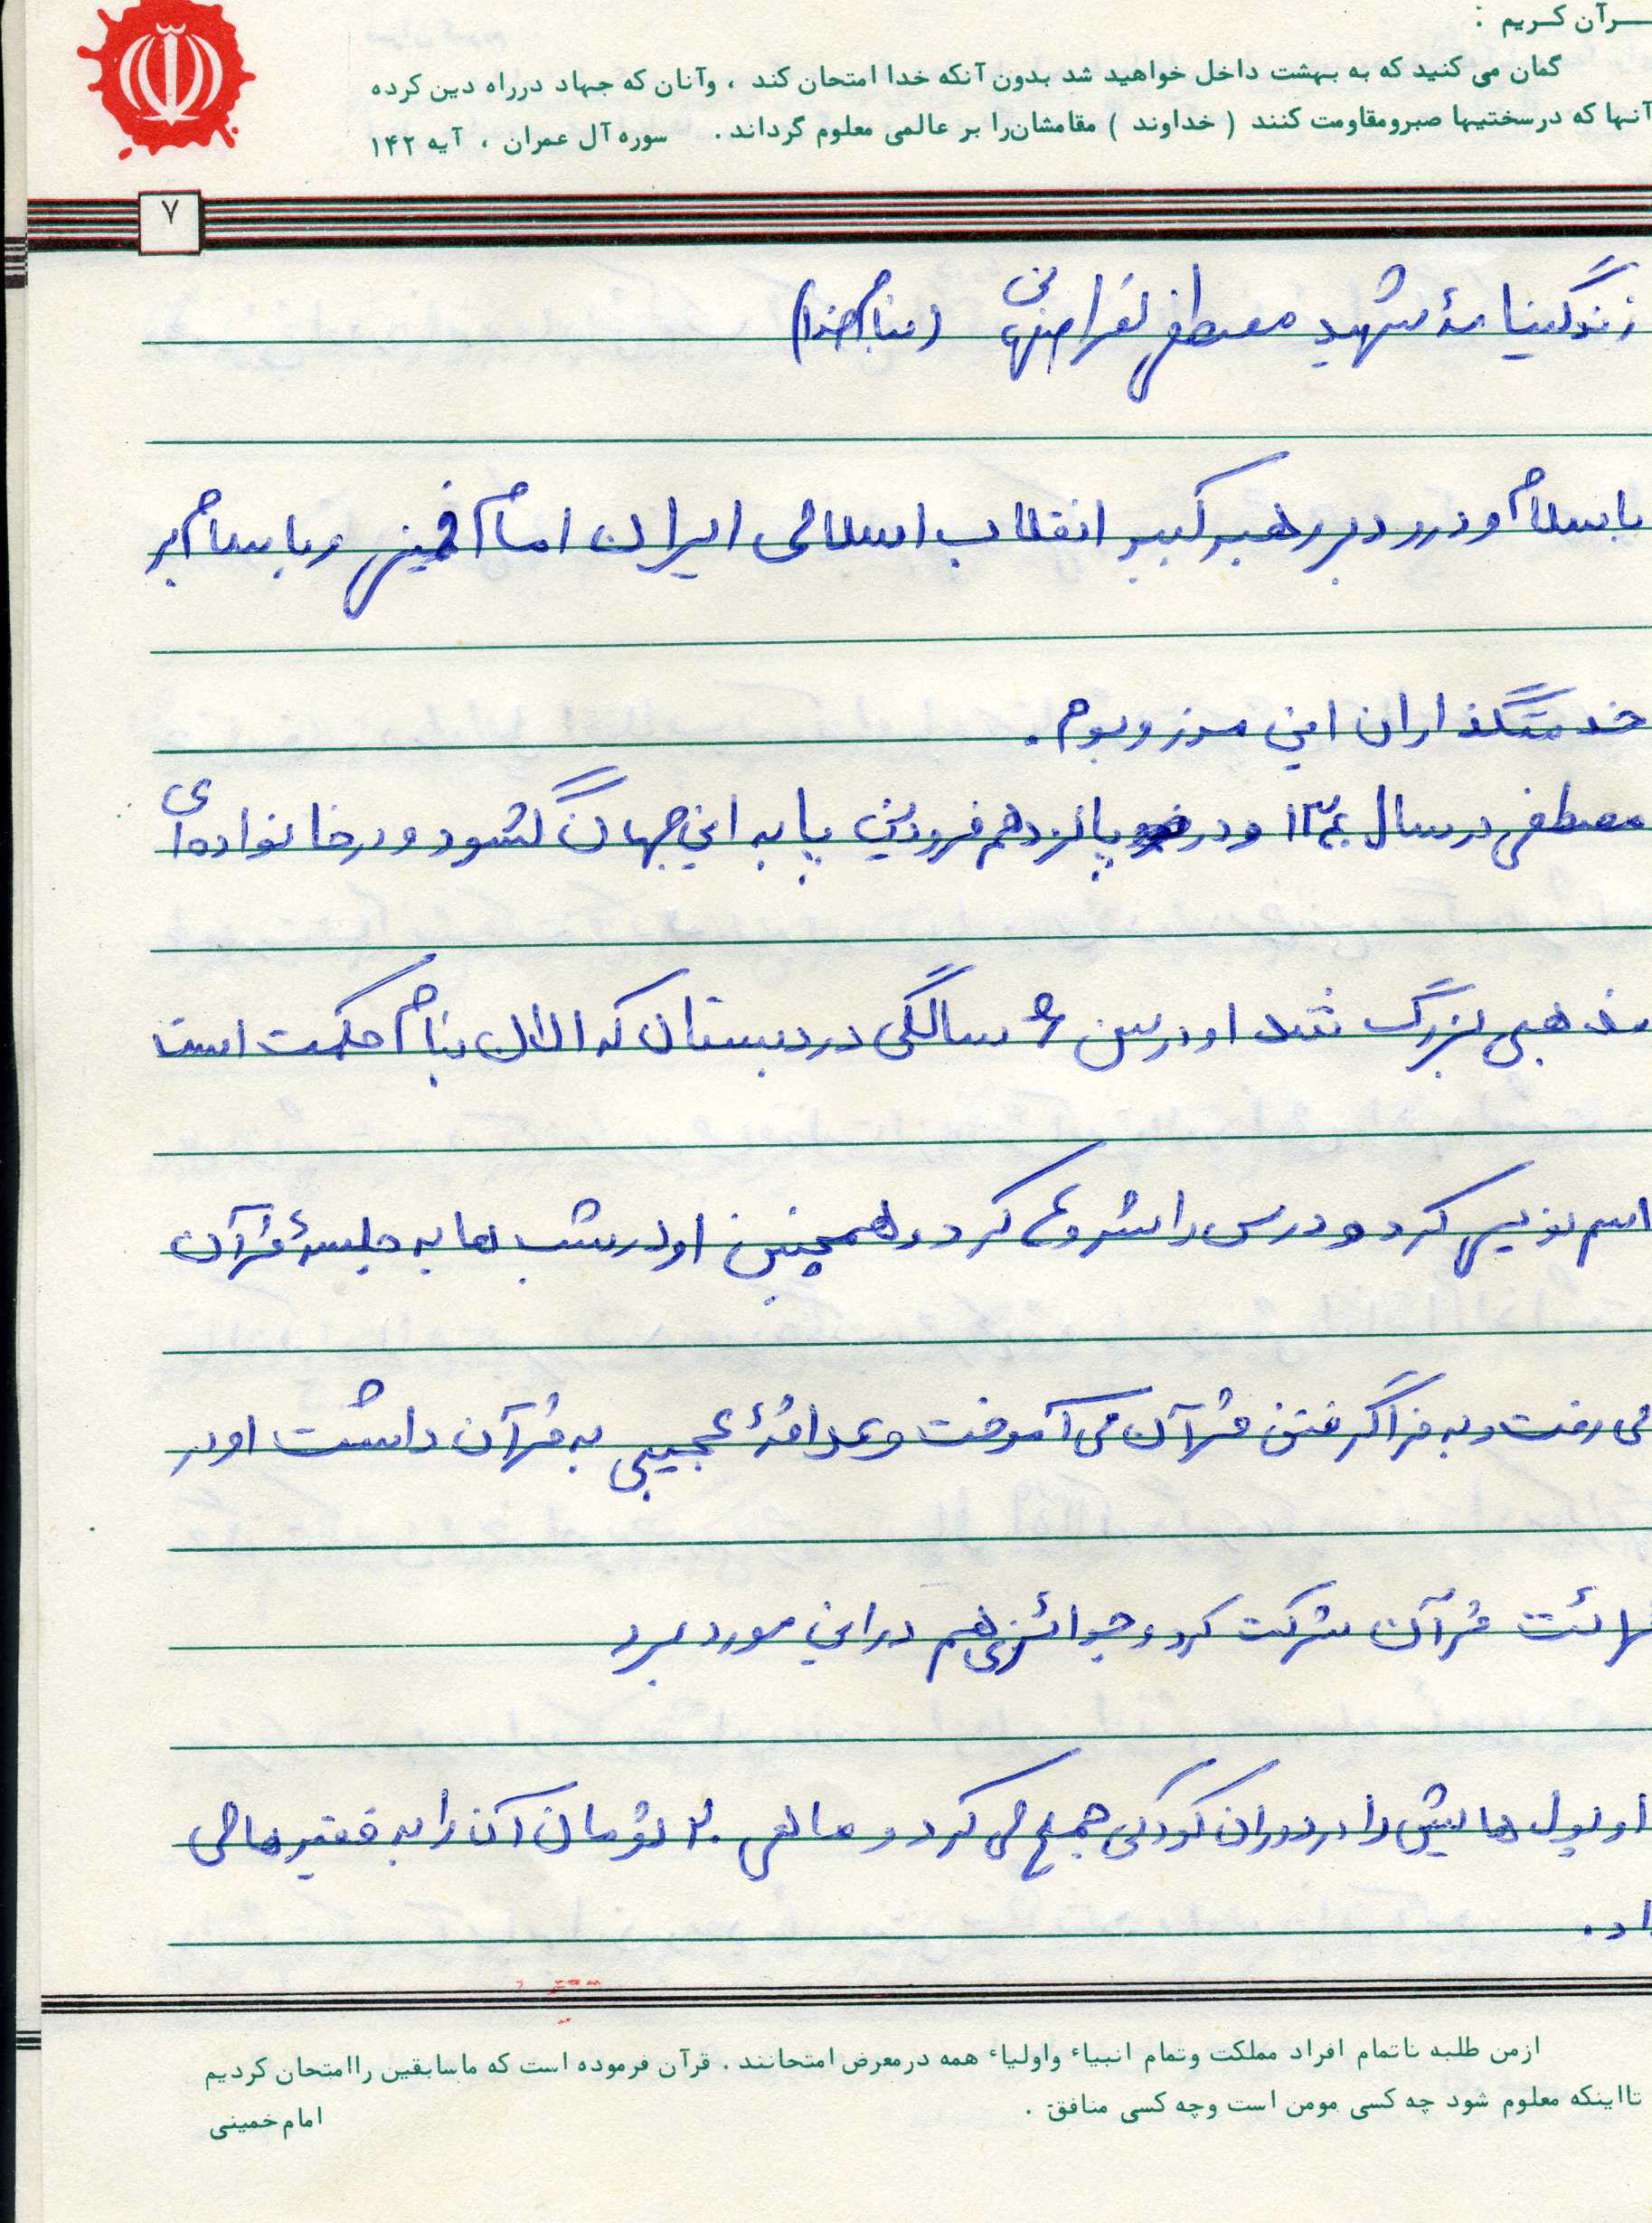 ـرآن کـریم :
گمان می کنید که به بهشت داخل خواهید شد بدون آنکه خدا امتحان کند ، وآنان که جهاد درراه دین کرده
آنها که درسختیها صبرومقاومت کنند ( خداوند ) مقامشان‌را بر عالمی معلوم گرداند . سوره آل عمران ، آیه ۱۴۲
۷
زندگینامهٔ شهید مصطفی (بنام خدا)
با سلام و درود بر رهبر کبیر انقلاب اسلامی ایران امام خمینی و با سلام بر
خدمتگذاران این مرز و بوم .
مصطفی در سال و در پانزدهم فروردین پا به این جهان گشود و در خانواده‌ای
مذهبی بزرگ شد او در سن ۶ سالگی در دبستان که الان بنام حکمت است
اسم نویسی کرد و درس را شروع کرد و همچنین او در شب ها به جلسهٔ قرآن
می رفت و به فراگرفتن قرآن می آموخت و علاقهٔ عجیبی به قرآن داشت او در
قرائت قرآن شرکت کرد و جوائزی هم در این مورد برد
او پول هایش را در دوران کودکی جمع می کرد و ماهی ۲۰ تومان آن را به فقیر ها می
داد .
ازمن طلبه تاتمام افراد مملکت وتمام انبیاء واولیاء همه درمعرض امتحانند . قرآن فرموده است که ماسابقین راامتحان کردیم
تااینکه معلوم شود چه کسی مومن است وچه کسی منافق .
امام خمینی